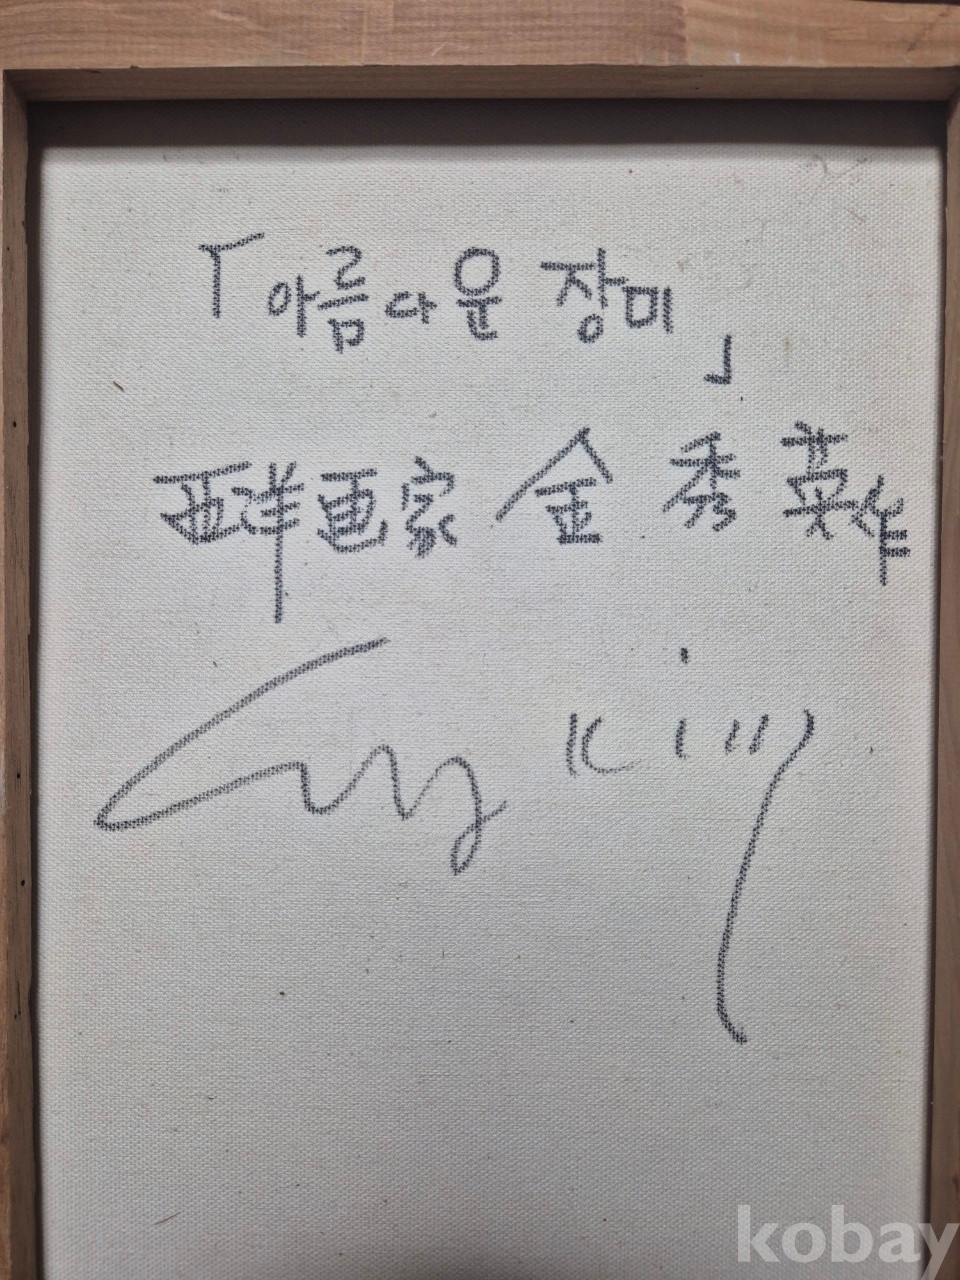 「아름다운 장미」
西洋画家 金秀英作
Kim
kobay